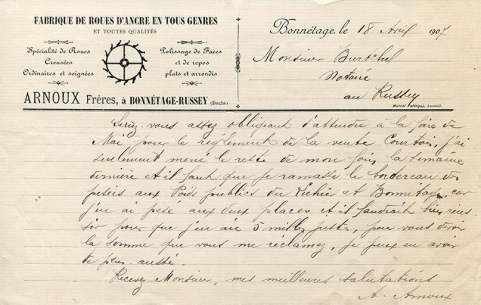 FABRIQUE DE ROUES D'ANCRE EN TOUS GENRES
ET TOUTES QUALITÉS
Spécialité de Roues
Creusées
Ordinaires et soignées
Polissage de Faces
et de repos
plats et arrondis
ARNOUX Frères, à BONNÉTAGE-RUSSEY (Doubs)
Bonnétage, le 18 Avril 1907
Monsieur
Notaire
au Russey
Seriez-vous assez obligeant d'attendre à la foire de
Mai pour le règlement de la vente Courtois, j'ai
seulement mené le reste de mon foin la semaine
dernière et il faut que je ramasse le bordereau des
pesées aux Poids publics du et Bonnétage car
j'en ai pesé aux deux places et il faudrait bien
pour que j'en aie 3 mille juste, pour vous
la somme que vous me réclamez, je peux en avoir
de peu aussi.
Recevez Monsieur, mes meilleures salutations
A. Arnoux